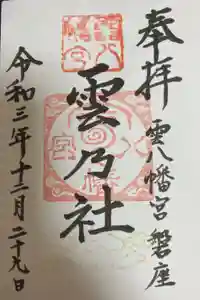 奉拝
雲八幡宮 磐座
雲乃社
令和三年十二月二十九日